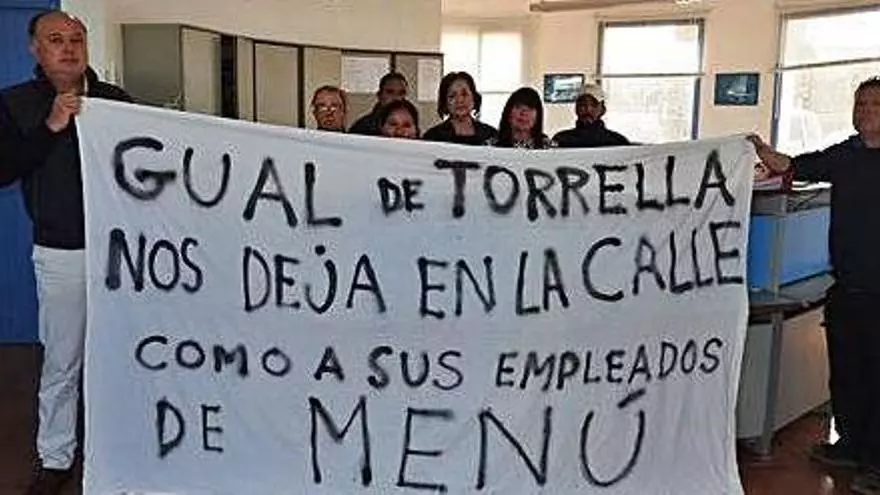 GUAL DE TORRELLA
NOS DEJA EN LA CALLE
COMO A SUS EMPLEADOS
DE MENÚ